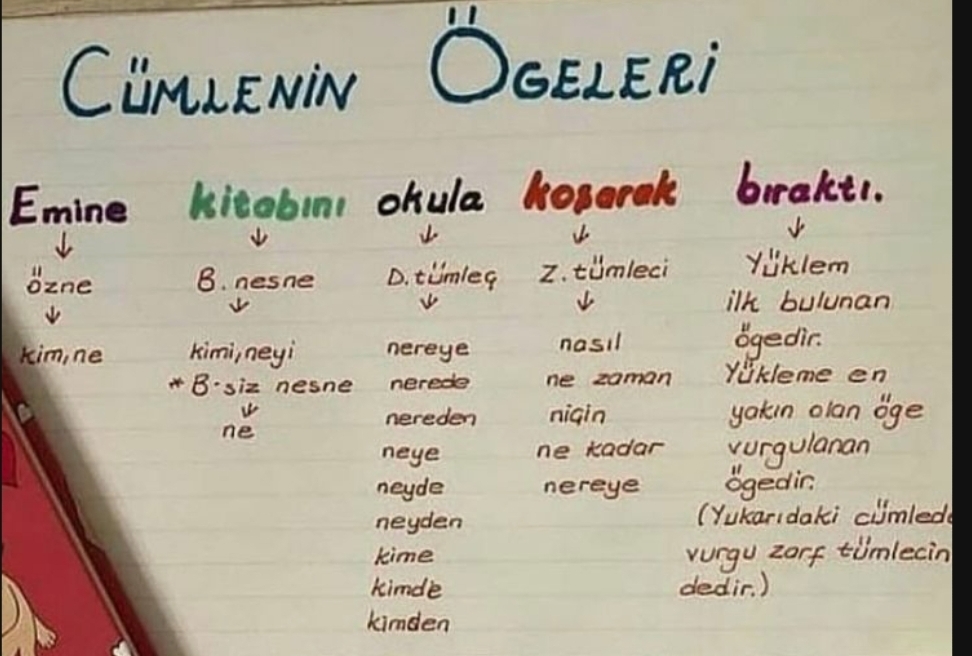 CÜMLENİN ÖGELERİ
Emine kitabını okula koşarak bıraktı.
özne
kim, ne
B. nesne
kimi, neyi
* B.siz nesne
ne
D. tümleç
nereye
nerede
nereden
neye
neyde
neyden
kime
kimde
kimden
Z. tümleci
nasıl
ne zaman
niçin
ne kadar
nereye
Yüklem
ilk bulunan
ögedir.
Yükleme en
yakın olan öge
vurgulanan
ögedir.
(Yukarıdaki cümlede
vurgu zarf tümlecin
dedir.)